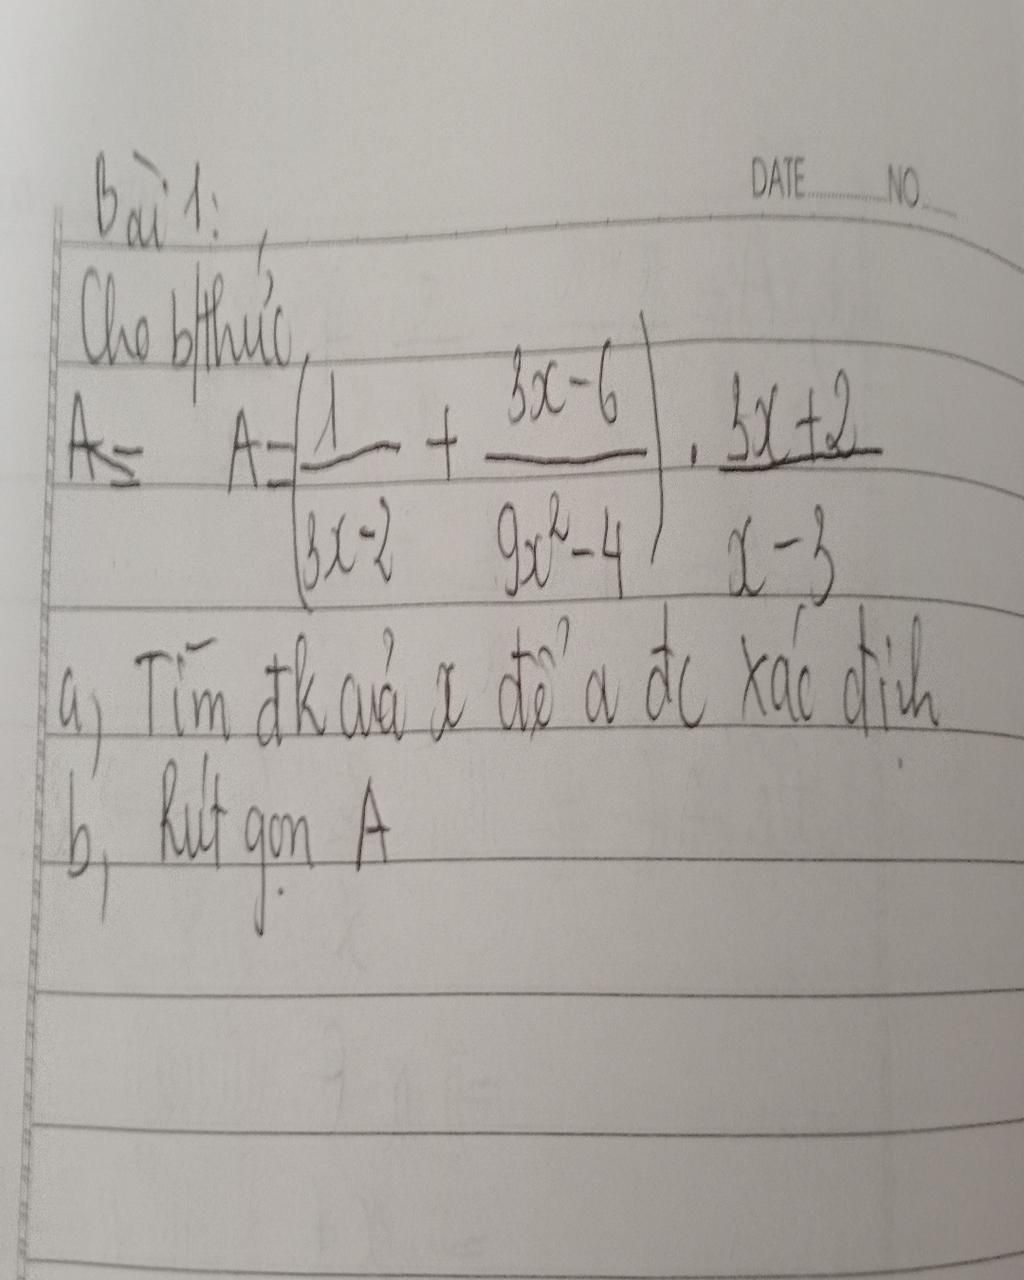 DATE NO
Bài 1:
Cho b/thức
A= A=(1/(3x-2) + (3x-6)/(9x²-4)) . (3x+2)/(x-3)
a, Tĩm đk của x để a đc xác định
b, Rút gọn A